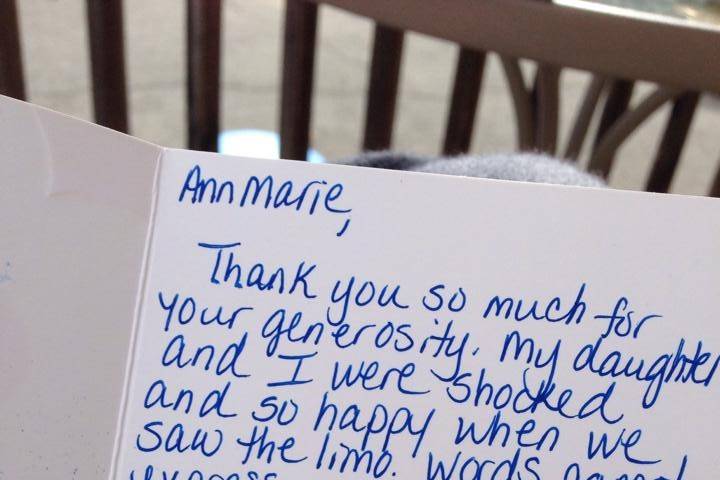 Ann Marie,
Thank you so much for
your generosity. My daughter
and I were shocked
and so happy when we
saw the limo. Words cannot
express